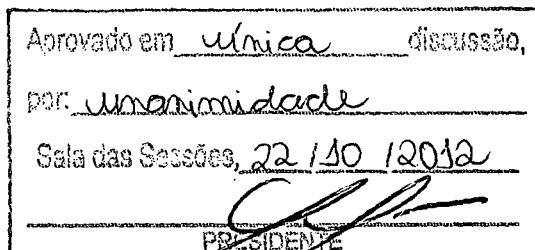 Aprovado em única discussão,
por: unanimidade
Sala das Sessões, 22 / 10 / 2012
PRESIDENTE